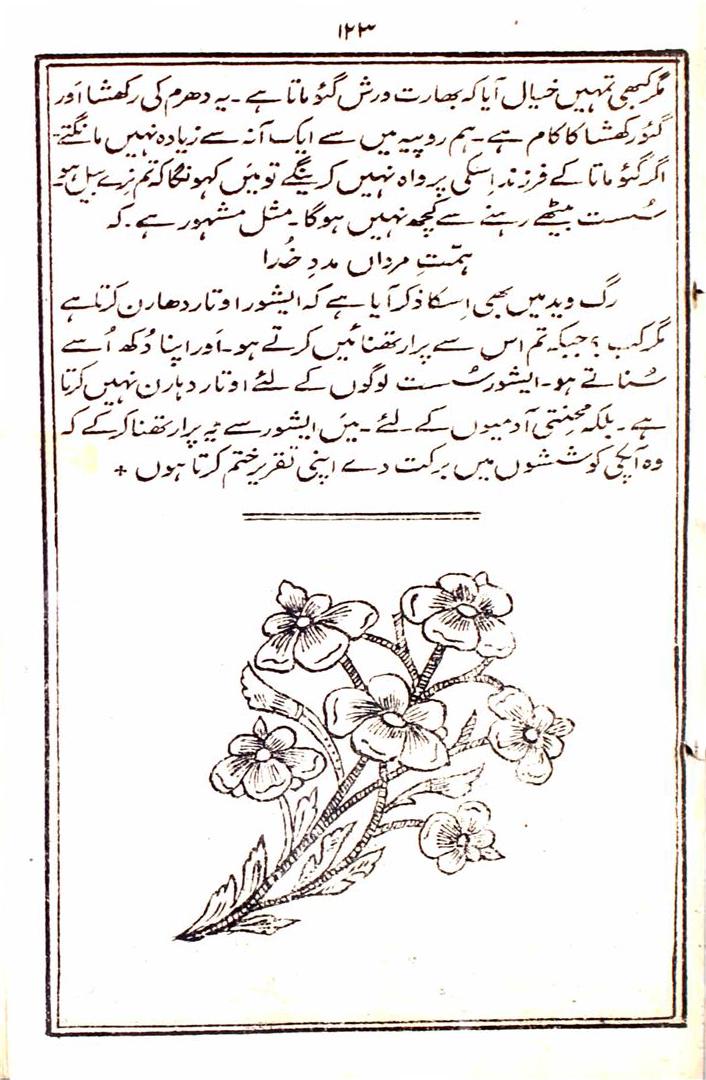 ۱۲۳
مگر کبھی تمہیں خیال آیا کہ بھارت ورش گئو ماتا ہے۔ یہ دھرم کی رکھشا اَور
گئو رکھشا کا کام ہے۔ ہم روپیہ میں سے ایک آنہ سے زیادہ نہیں مانگتے۔
اگر گئو ماتا کے فرزند اِسکی پرواہ نہیں کرینگے تو میَں کہونگا کہ تم نِرے بیل ہو۔
سُست بیٹھے رہنے سے کچھ نہیں ہوگا۔ مثل مشہور ہے۔ کہ
ہمّتِ مرداں مددِ خُدا
رگ وید میں بھی اِسکا ذکر آیا ہے کہ ایشور اوتار دھارن کرتا ہے
مگر کب؟ جبکہ تم اس سے پرارتھنائیں کرتے ہو۔ اَور اپنا دُکھ اُسے
سُناتے ہو۔ ایشور سُست لوگوں کے لئے اوتار دہارن نہیں کرتا
ہے۔ بلکہ محنتی آدمیوں کے لئے۔ میَں ایشور سے یہ پرارتھنا کرکے کہ
وہ آپکی کوششوں میں برکت دے اپنی تقریر ختم کرتا ہوں +